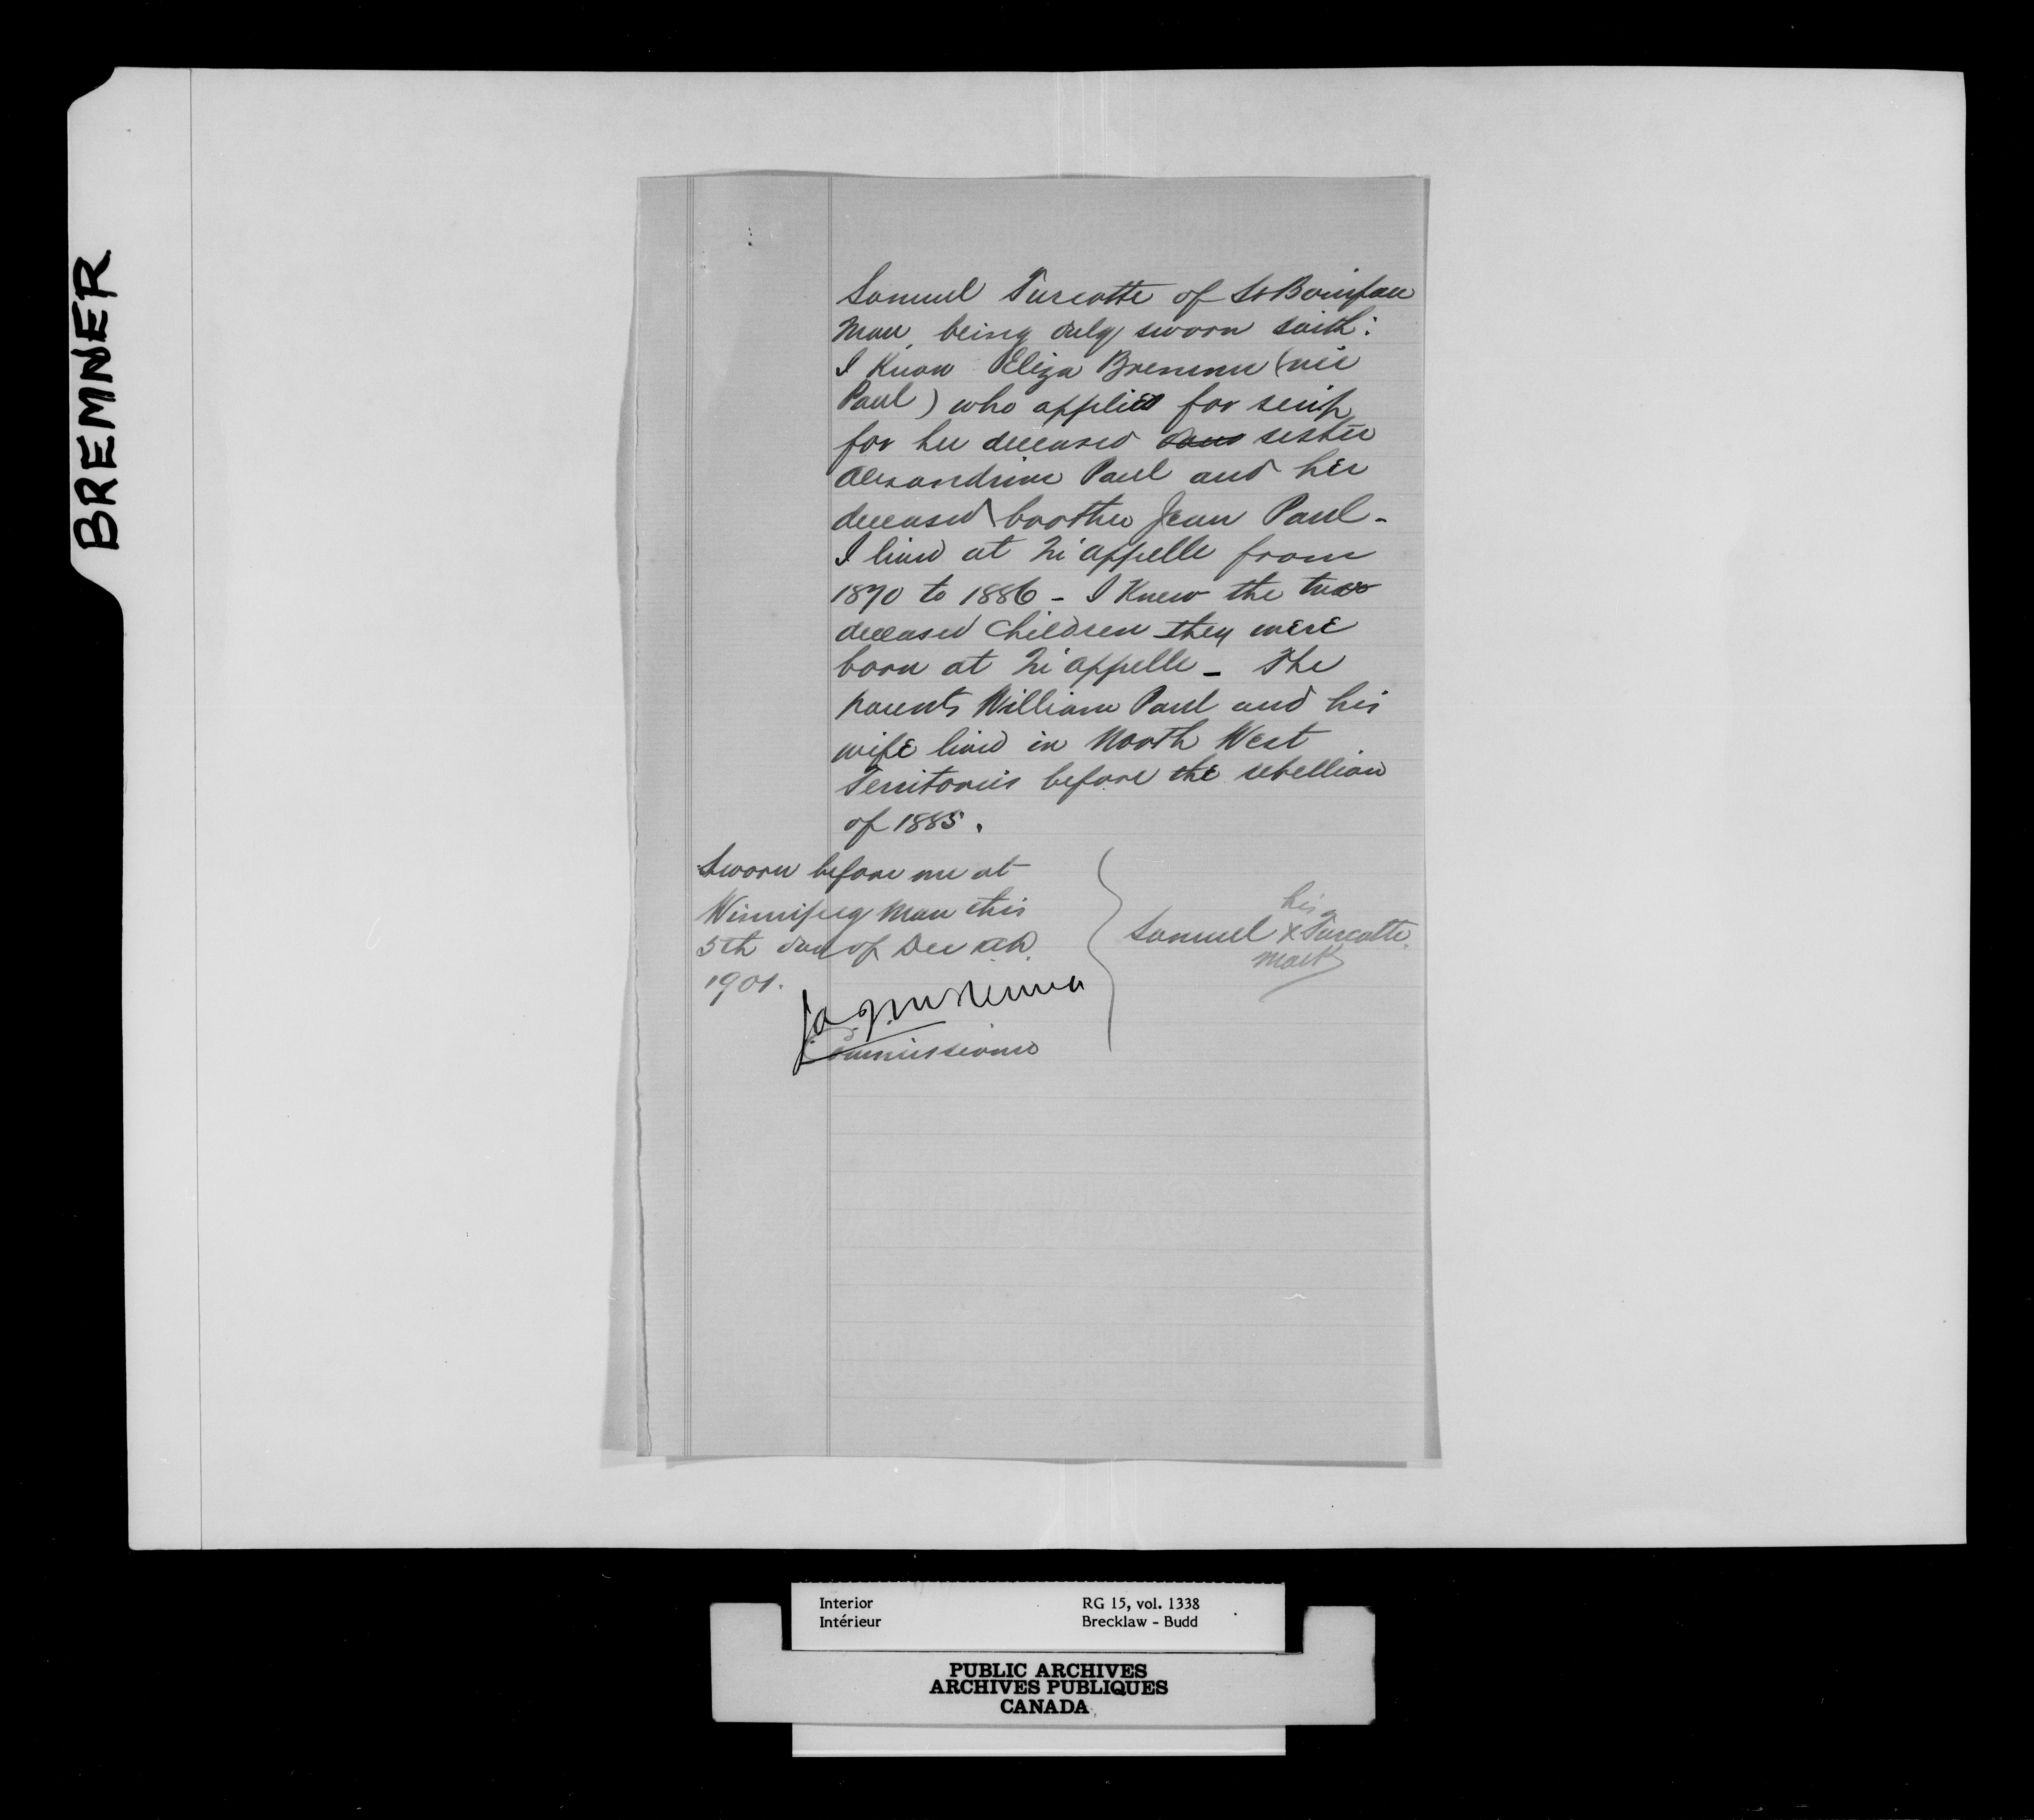 BREMNER
Samuel Turcotte of St Boniface
Man. being duly sworn saith:
I know Eliza Bremner (née
Paul) who applied for scrip
for her deceased sister
Alexandrine Paul and her
deceased brother Jean Paul -
I lived at Qu'appelle from
1870 to 1886 - I knew the two
deceased children they were
born at Qu'appelle - The
parents William Paul and his
wife lived in North West
Territories before the rebellion
of 1885.
Sworn before me at
Winnipeg Man this
5th day of Dec A.D.
1901.
Commissioner
his
Samuel X Turcotte.
mark
Interior
Intérieur
RG 15, vol. 1338
Brecklaw - Budd
PUBLIC ARCHIVES
ARCHIVES PUBLIQUES
CANADA